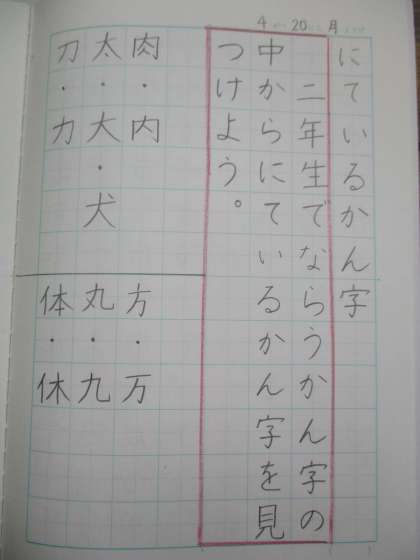 4 20 月
にているかん字
二年生でならうかん字の
中からにているかん字を見
つけよう。
肉・内
太・大・犬
刀・力
方・万
丸・九
体・休